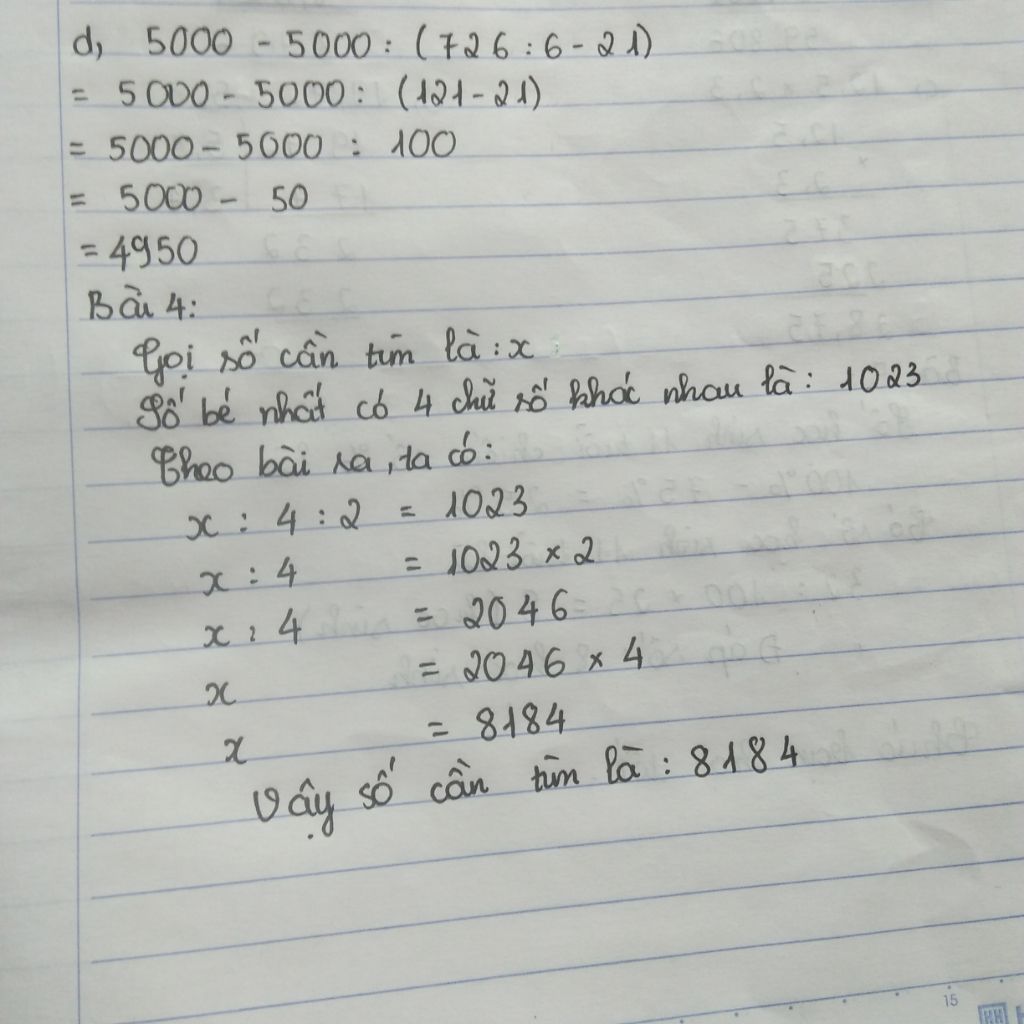 d, 5000 - 5000 : (726 : 6 - 21)
= 5000 - 5000 : (121 - 21)
= 5000 - 5000 : 100
= 5000 - 50
= 4950
Bài 4:
Gọi số cần tìm là : x
Số bé nhất có 4 chữ số khác nhau là : 1023
Theo bài ra, ta có :
x : 4 : 2 = 1023
x : 4 = 1023 x 2
x : 4 = 2046
x = 2046 x 4
x = 8184
Vậy số cần tìm là : 8184
15